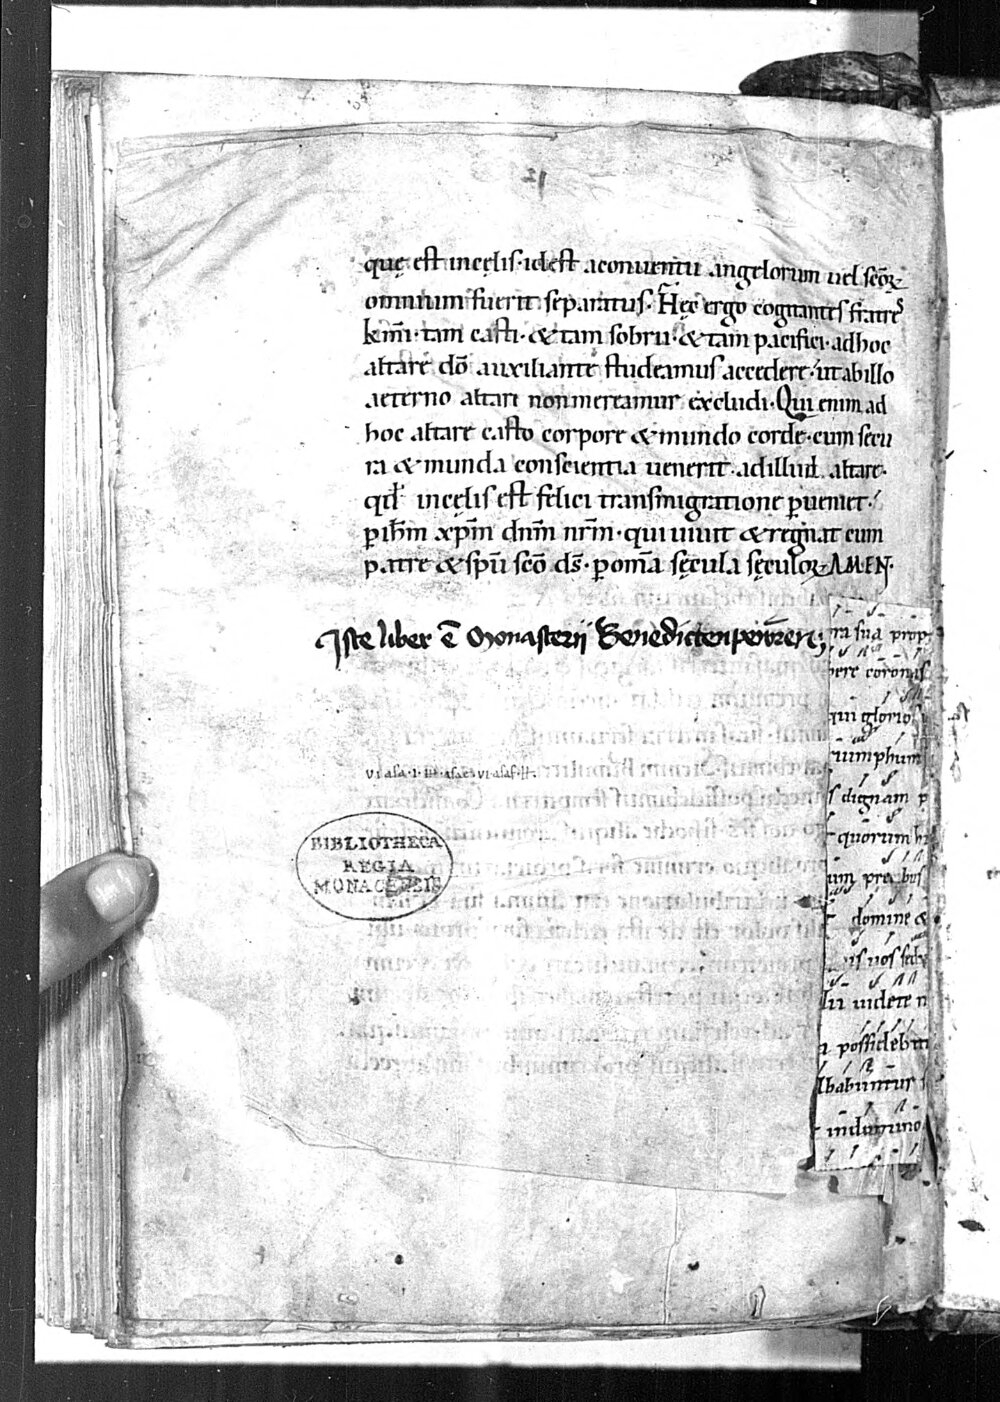 quę est incęlis· idest aconuentu angelorum uel scōꝝ
omnium fuerit separatus· Hęc ergo cogitantes fratrꝭ
km̄i· tam casti· & tam sobrii· & tam pacifici· adhoc
altare dō auxiliante studeamus accedere· ut abillo
aeterno altari nonmereamur excludi· Qui enim ad
hoc altare casto corpore & mundo corde· cum secu
ra & munda conscientia uenerit· adillud altare·
qđ incęlis est felici transmigratione ꝑueniet·
ꝑ ihm̄ xp̄m dnm̄ nr̄m· qui uiuit & regnat cum
patre & spū scō ds̄· ꝑ om̄a sęcula sęculoꝝ AMEN·
Iste liber ē Monasterii Benedictenpewren
BIBLIOTHECA
REGIA
MONACENSIS
ra sua prop
pere coronas
qui glorios
riumphum
s dignam p
quorum
um precibus
domine &
is uos sed
in uidete n
possideb
lbabuntur